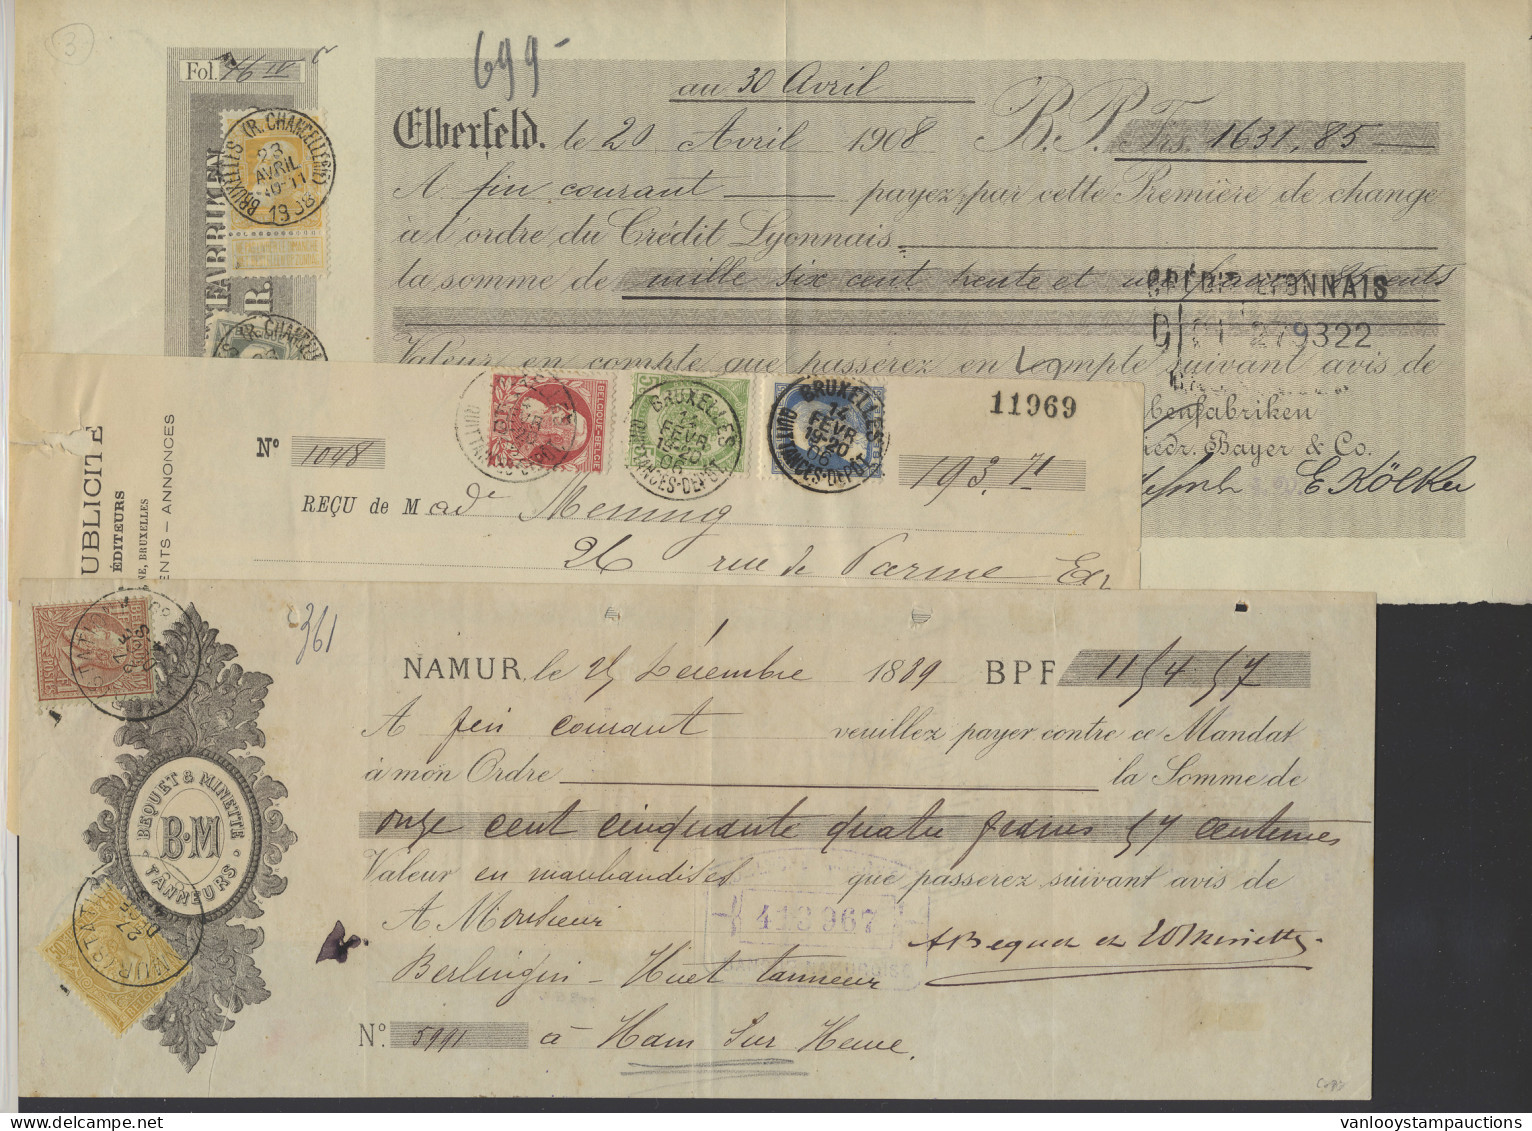 3
699-
Fol. 76 IV
au 30 Avril
Elberfeld. le 20 Avril 1908 B.P. Frs. 1631,85
A fin courant payez par cette Première de change
à l'ordre du Crédit Lyonnais
la somme de mille six cent trente et
CRÉDIT LYONNAIS
279322
Valeur en compte que passerez en compte suivant avis de
benfabriken
iedr. Bayer & Co.
E Kölker
FARBRIKEN
R.
BRUXELLES (R. CHANCELLERIE)
23
AVRIL
10-11
1908
(R. CHANCELL
UBLICITÉ
ÉDITEURS
NE, BRUXELLES
ENTS – ANNONCES
11969
BELGIQUE-BELGIË
BRUXELLES
14
FÉVR
19-20
06
QUITTANCES-DEPÔT
BRUXELLES
14
FÉVR
19-20
06
QUITTANCES-DEPÔT
No 1048
193.71
REÇU de Mad Menning
26 rue de Parme
361
NAMUR, le 25 Décembre 1889 BPF 1154.57
A fin courant veuillez payer contre ce Mandat
à mon Ordre la Somme de
onze cent cinquante quatre francs 57 centimes
Valeur en marchandises que passerez suivant avis de
A Monsieur
413967
ABequet et Minette
Berlingin - Huet tanneur
No. 5991 à Ham Sur Heure.
BEQUET & MINETTE
B·M
TANNEURS
27
DÉCE
vanlooystampauctions